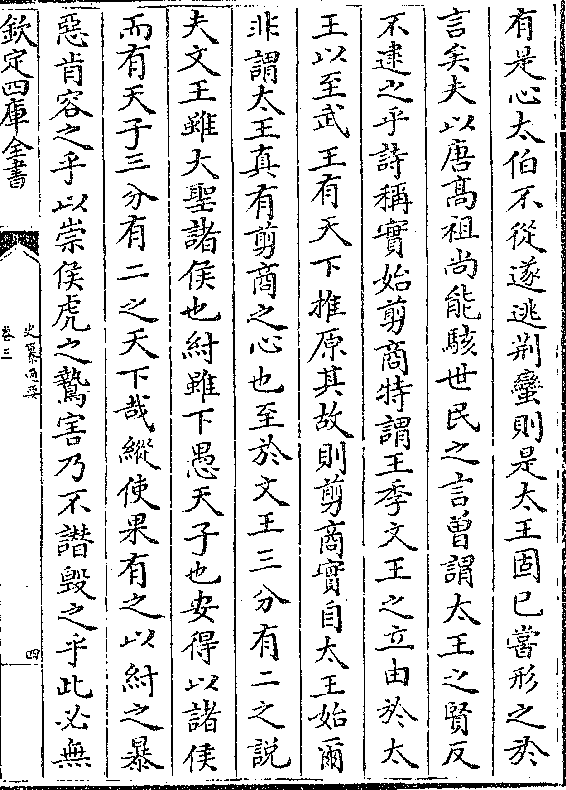 有是心太伯不從遂逃荆蠻則是太王固已嘗形之於
言矣夫以唐髙祖尚能駭世民之言曽謂太王之賢反
不逮之乎詩稱實始剪商特謂王季文王之立由於太
王以至武王有天下推原其故則剪商實自太王始爾
非謂太王真有剪商之心也至於文王三分有二之説
夫文王雖大聖諸侯也紂雖下愚天子也安得以諸侯
而有天子三分有二之天下哉縱使果有之以紂之暴
惡肯容之乎以崇侯虎之鷙害乃不譖毁之乎此必無
欽定四庫全書
史纂通要
卷三
四